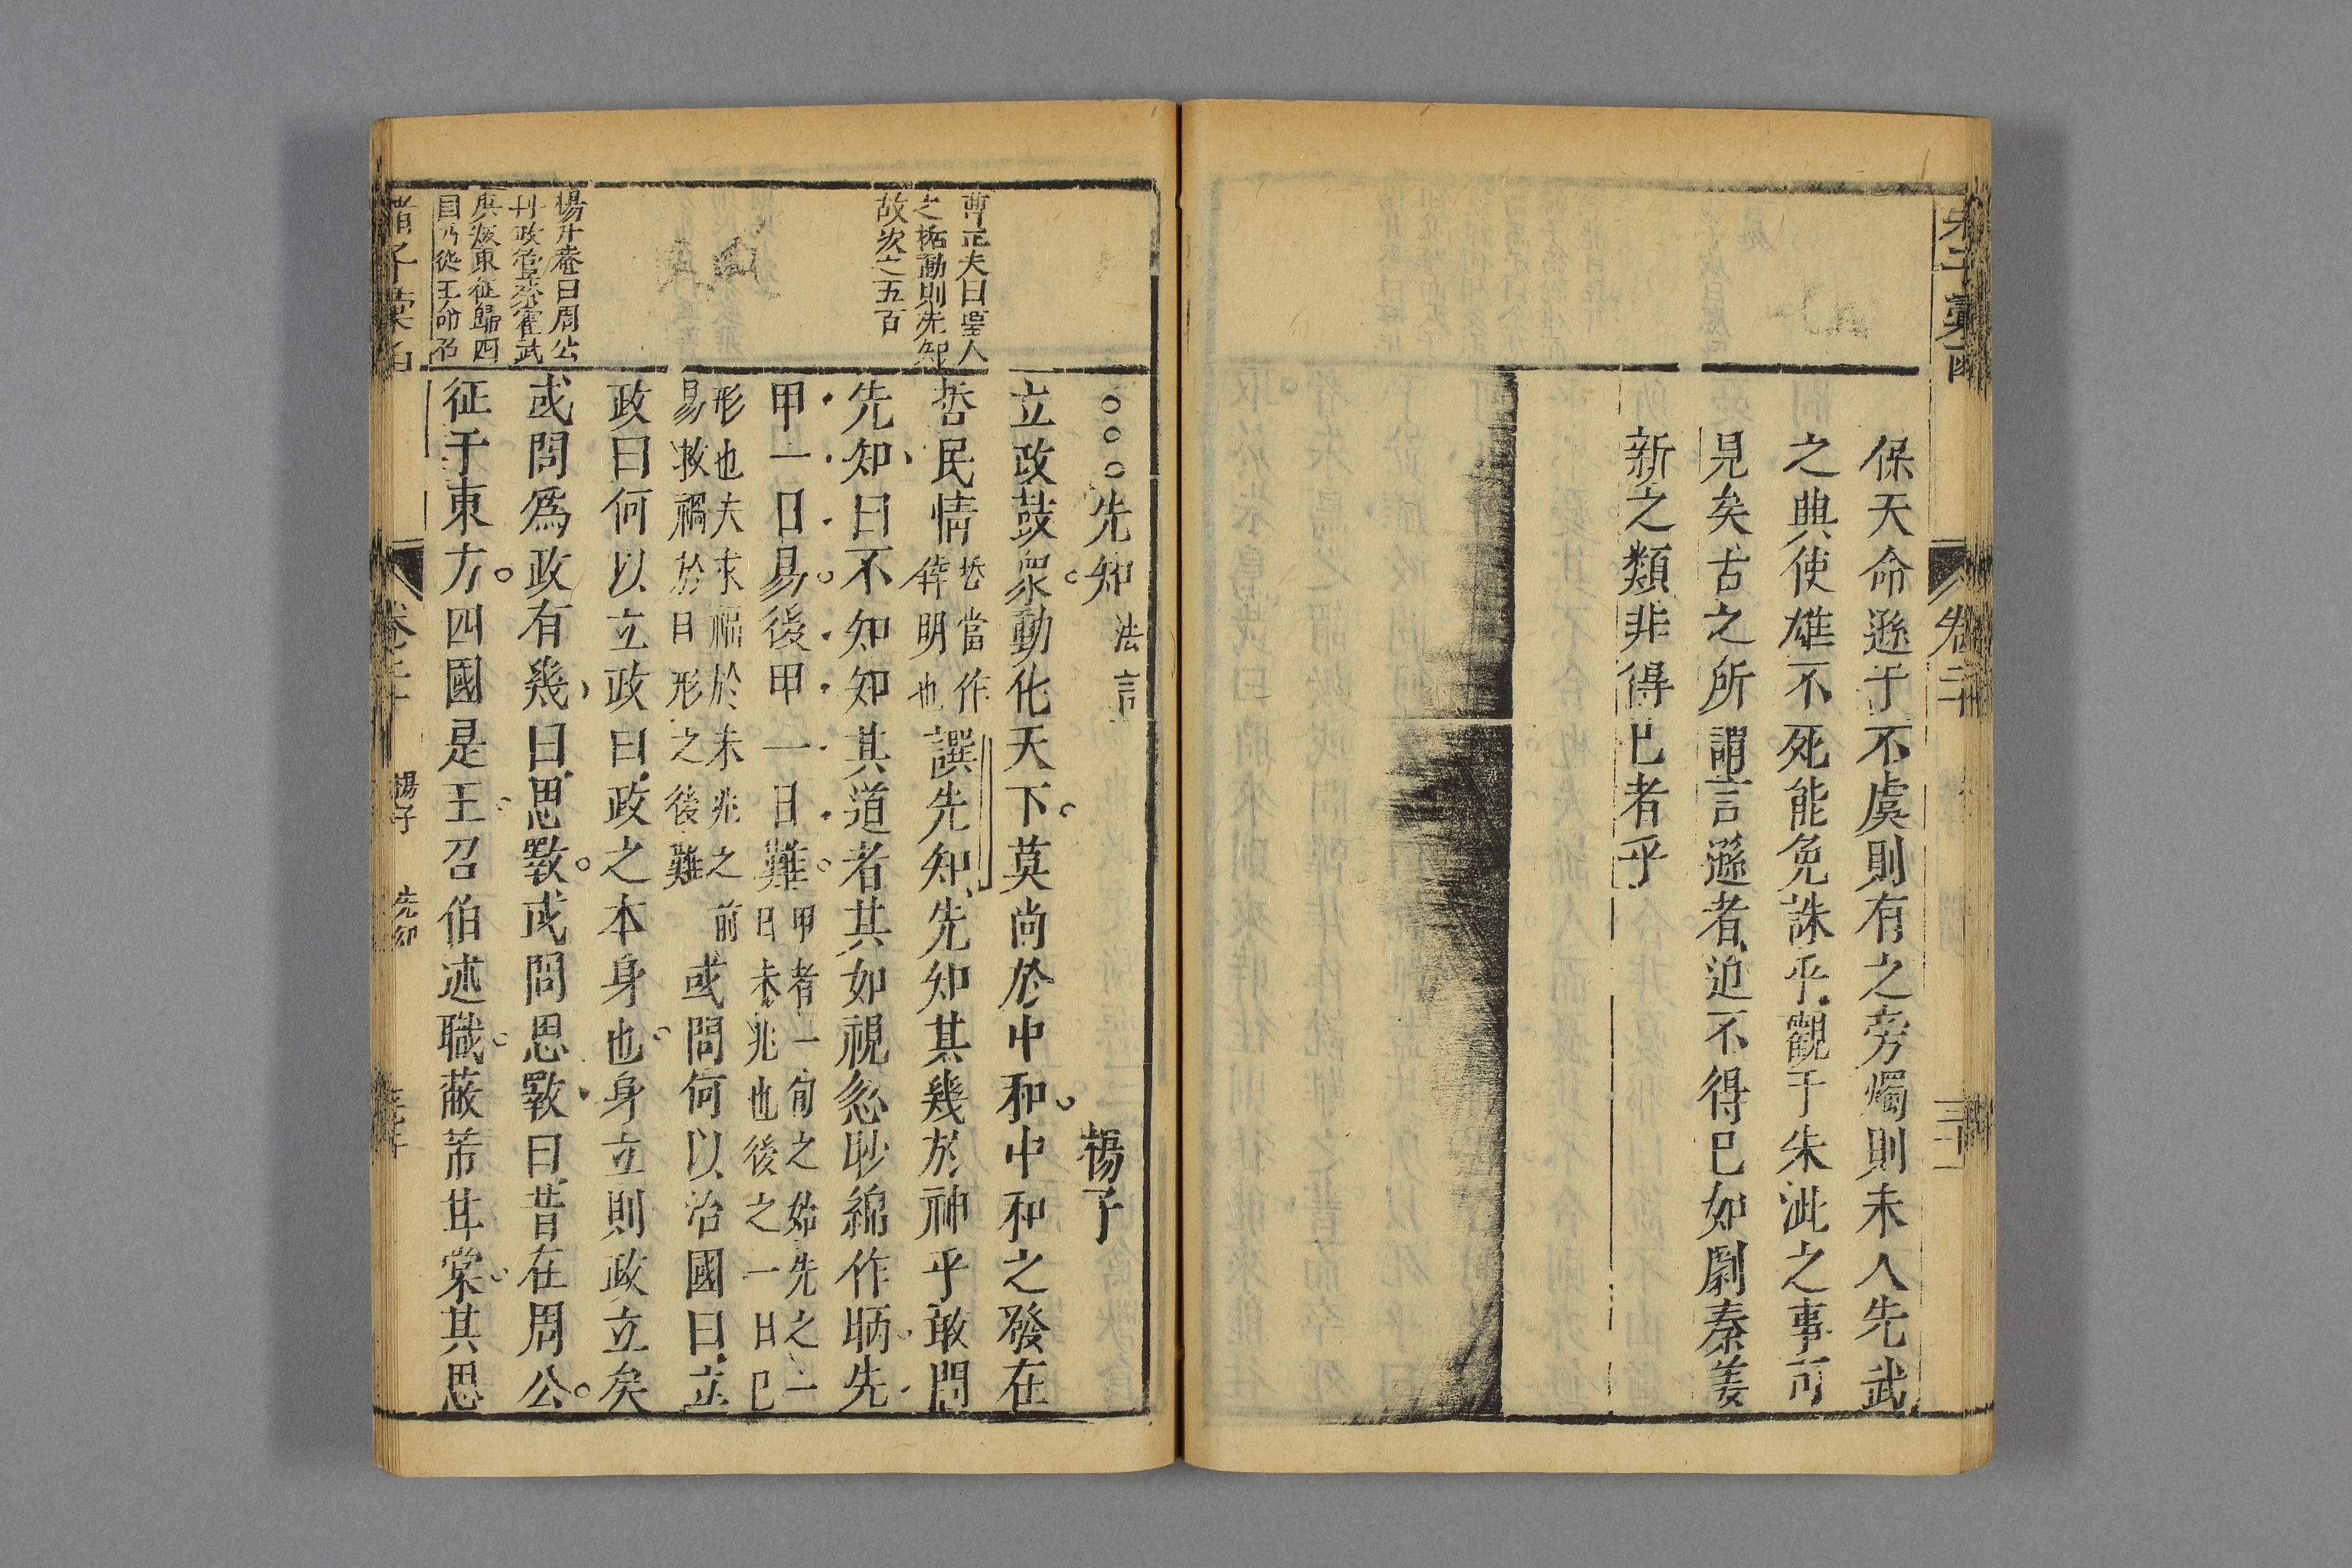 保天命遜于不虞則有之旁燭則未人先武
之典使雄不死能免誅乎觀于朱泚之事可
見矣古之所謂言遜者迫不得已如劇秦美
新之類非得已者乎
卷二十
三十一
曹正夫曰聖人
之柘動則先知
故次之五百
楊升菴曰周公
刊政管蔡霍武
庚叛東征歸四
國乃從王命召
先知 法言 揚子
立政鼓衆動化天下莫尚於中和中和之發在
哲民情
哲當作
倬明也
譔先知先知其幾於神乎敢問
先知曰不知知其道者其如視忽眇綿作昞先
甲一日易後甲一日難
甲者一旬之始先之一
日未兆也後之一日已
形也夫求福於未兆之前
易救禍於日形之後難
或問何以治國曰立
政曰何以立政曰政之本身也身立則政立矣
或問爲政有幾曰思斁或問思斁曰昔在周公
征于東方四國是王召伯述職蔽芾甘棠其思
楊子
先知